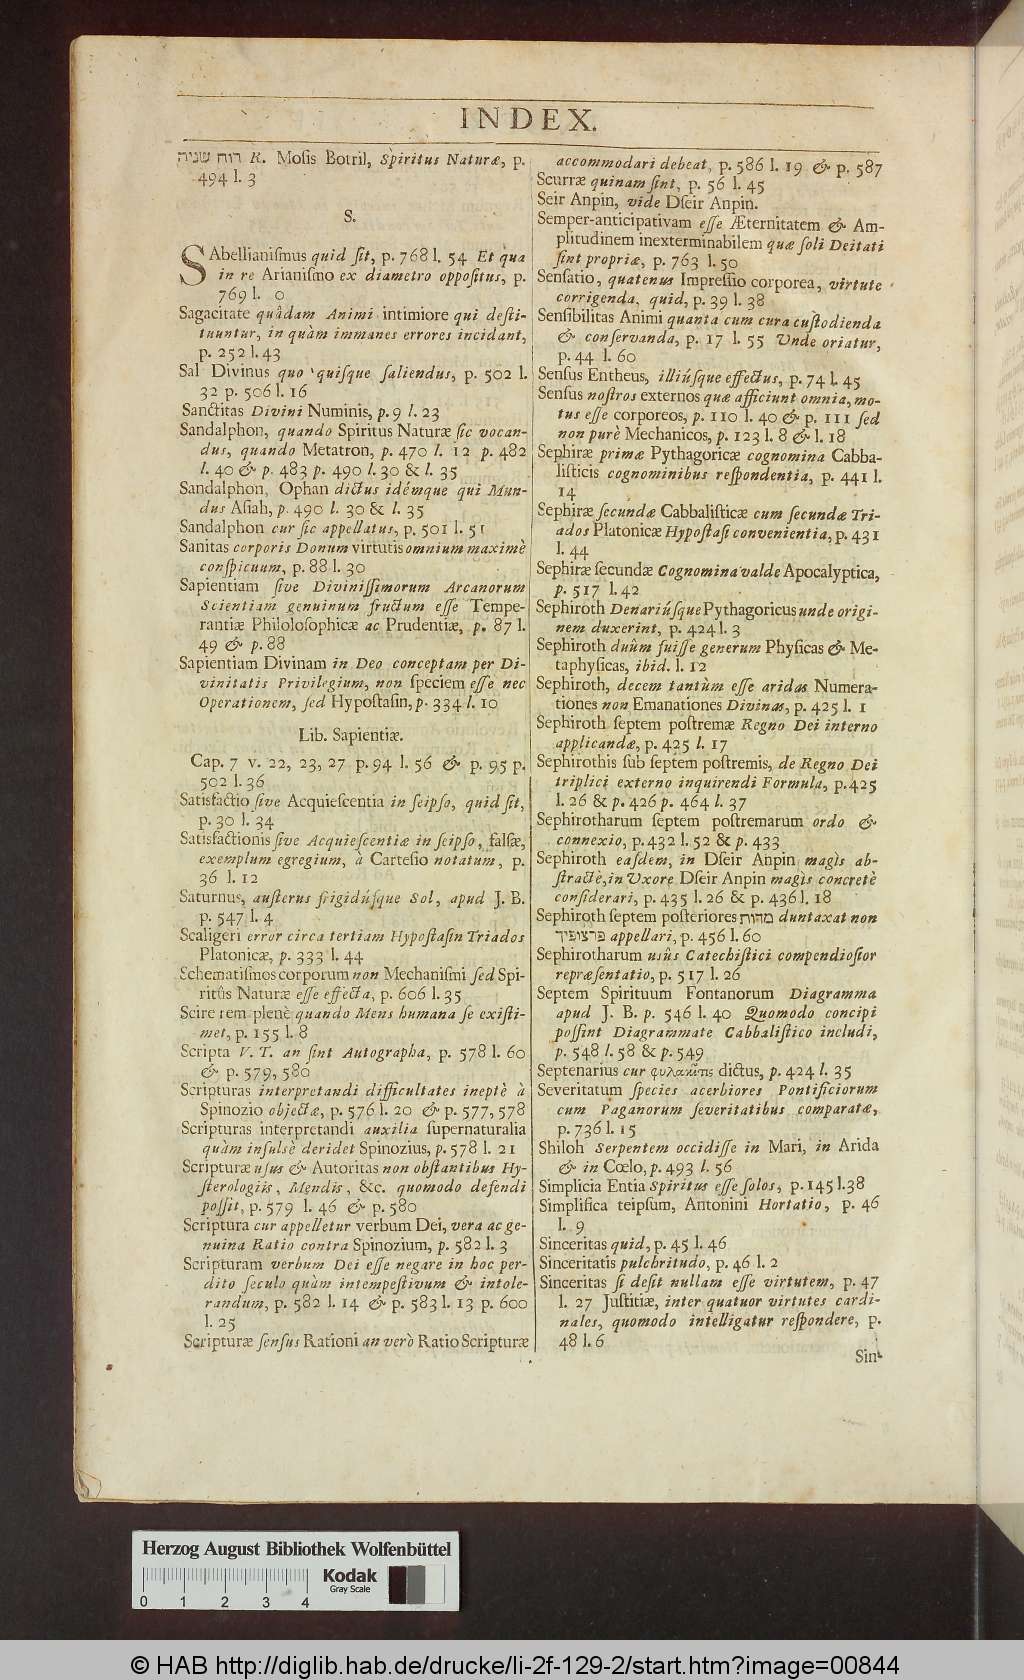 INDEX.
רוח שניה R. Mosis Botril, Spiritus Naturæ, p.
494 l. 3
S.
SAbellianiſmus quid ſit, p. 768 l. 54 Et quà
in re Arianiſmo ex diametro oppoſitus, p.
769 l. 0
Sagacitate quâdam Animi intimiore qui deſti-
tuuntur, in quàm immanes errores incidant,
p. 252 l. 43
Sal Divinus quo quiſque ſaliendus, p. 502 l.
32 p. 506 l. 16
Sanctitas Divini Numinis, p. 9 l. 23
Sandalphon, quando Spiritus Naturæ ſic vocan-
dus, quando Metatron, p. 470 l. 12 p. 482
l. 40 & p. 483 p. 490 l. 30 & l. 35
Sandalphon, Ophan dictus idémque qui Mun-
dus Aſiah, p. 490 l. 30 & l. 35
Sandalphon cur ſic appellatus, p. 501 l. 51
Sanitas corporis Donum virtutis omnium maximè
conſpicuum, p. 88 l. 30
Sapientiam ſive Diviniſſimorum Arcanorum
Scientiam genuinum fructum eſſe Tempe-
rantiæ Philoſophicæ ac Prudentiæ, p. 87 l.
49 & p. 88
Sapientiam Divinam in Deo conceptam per Di-
vinitatis Privilegium, non ſpeciem eſſe nec
Operationem, ſed Hypoſtaſin, p. 334 l. 10
Lib. Sapientiæ.
Cap. 7 v. 22, 23, 27 p. 94 l. 56 & p. 95 p.
502 l. 36
Satisfactio ſive Acquieſcentia in ſeipſo, quid ſit,
p. 30 l. 34
Satisfactionis ſive Acquieſcentiæ in ſeipſo, falſæ,
exemplum egregium, à Carteſio notatum, p.
36 l. 12
Saturnus, auſterus frigidúſque Sol, apud J. B.
p. 547 l. 4
Scaligeri error circa tertiam Hypoſtaſin Triados
Platonicæ, p. 333 l. 44
Schematiſmos corporum non Mechaniſmi ſed Spi-
ritûs Naturæ eſſe effecta, p. 606 l. 35
Scire rem plenè quando Mens humana ſe exiſti-
met, p. 155 l. 8
Scripta V. T. an ſint Autographa, p. 578 l. 60
& p. 579, 580
Scripturas interpretandi difficultates ineptè à
Spinozio objectæ, p. 576 l. 20 & p. 577, 578
Scripturas interpretandi auxilia ſupernaturalia
quàm inſulsè deridet Spinozius, p. 578 l. 21
Scripturæ uſus & Autoritas non obſtantibus Hy-
ſterologiis, Mendis, &c. quomodo defendi
poſſit, p. 579 l. 46 & p. 580
Scriptura cur appelletur verbum Dei, vera ac ge-
nuina Ratio contra Spinozium, p. 582 l. 3
Scripturam verbum Dei eſſe negare in hoc per-
dito ſeculo quàm intempeſtivum & intole-
randum, p. 582 l. 14 & p. 583 l. 13 p. 600
l. 25
Scripturæ ſenſus Rationi an verò Ratio Scripturæ
accommodari debeat, p. 586 l. 19 & p. 587
Scurræ quinam ſint, p. 56 l. 45
Seir Anpin, vide Dſeir Anpin.
Semper-anticipativam eſſe Æternitatem & Am-
plitudinem inexterminabilem quæ ſoli Deitati
ſint propriæ, p. 763 l. 50
Senſatio, quatenus Impreſſio corporea, virtute
corrigenda, quid, p. 39 l. 38
Senſibilitas Animi quanta cum cura cuſtodienda
& conſervanda, p. 17 l. 55 Unde oriatur,
p. 44 l. 60
Senſus Entheus, illiúſque effectus, p. 74 l. 45
Senſus noſtros externos quæ afficiunt omnia, mo-
tus eſſe corporeos, p. 110 l. 40 & p. 111 ſed
non purè Mechanicos, p. 123 l. 8 & l. 18
Sephiræ primæ Pythagoricæ cognomina Cabba-
liſticis cognominibus reſpondentia, p. 441 l.
14
Sephiræ ſecundæ Cabbaliſticæ cum ſecundæ Tri-
ados Platonicæ Hypoſtaſi convenientia, p. 431
l. 44
Sephiræ ſecundæ Cognomina valde Apocalyptica,
p. 517 l. 42
Sephiroth Denariúſque Pythagoricus unde origi-
nem duxerint, p. 424 l. 3
Sephiroth duûm fuiſſe generum Phyſicas & Me-
taphyſicas, ibid. l. 12
Sephiroth, decem tantùm eſſe aridas Numera-
tiones non Emanationes Divinas, p. 425 l. 1
Sephiroth ſeptem poſtremæ Regno Dei interno
applicandæ, p. 425 l. 17
Sephirothis ſub ſeptem poſtremis, de Regno Dei
triplici externo inquirendi Formula, p. 425
l. 26 & p. 426 p. 464 l. 37
Sephirotharum ſeptem poſtremarum ordo &
connexio, p. 432 l. 52 & p. 433
Sephiroth eaſdem, in Dſeir Anpin magìs ab-
ſtractè, in Uxore Dſeir Anpin magìs concretè
conſiderari, p. 435 l. 26 & p. 436 l. 18
Sephiroth ſeptem poſteriores מהות duntaxat non
פרצופיך appellari, p. 456 l. 60
Sephirotharum usûs Catechiſtici compendioſior
repræſentatio, p. 517 l. 26
Septem Spirituum Fontanorum Diagramma
apud J. B. p. 546 l. 40 Quomodo concipi
poſſint Diagrammate Cabbaliſtico includi,
p. 548 l. 58 & p. 549
Septenarius cur φυλακῖτις dictus, p. 424 l. 35
Severitatum ſpecies acerbiores Pontificiorum
cum Paganorum ſeveritatibus comparatæ,
p. 736 l. 15
Shiloh Serpentem occidiſſe in Mari, in Arida
& in Cœlo, p. 493 l. 56
Simplicia Entia Spiritus eſſe ſolos, p. 145 l. 38
Simplifica teipſum, Antonini Hortatio, p. 46
l. 9
Sinceritas quid, p. 45 l. 46
Sinceritatis pulchritudo, p. 46 l. 2
Sinceritas ſi deſit nullam eſſe virtutem, p. 47
l. 27 Juſtitiæ, inter quatuor virtutes cardi-
nales, quomodo intelligatur reſpondere, p.
48 l. 6
Sin-
Herzog August Bibliothek Wolfenbüttel
Kodak
Gray Scale
0 1 2 3 4
© HAB http://diglib.hab.de/drucke/li-2f-129-2/start.htm?image=00844